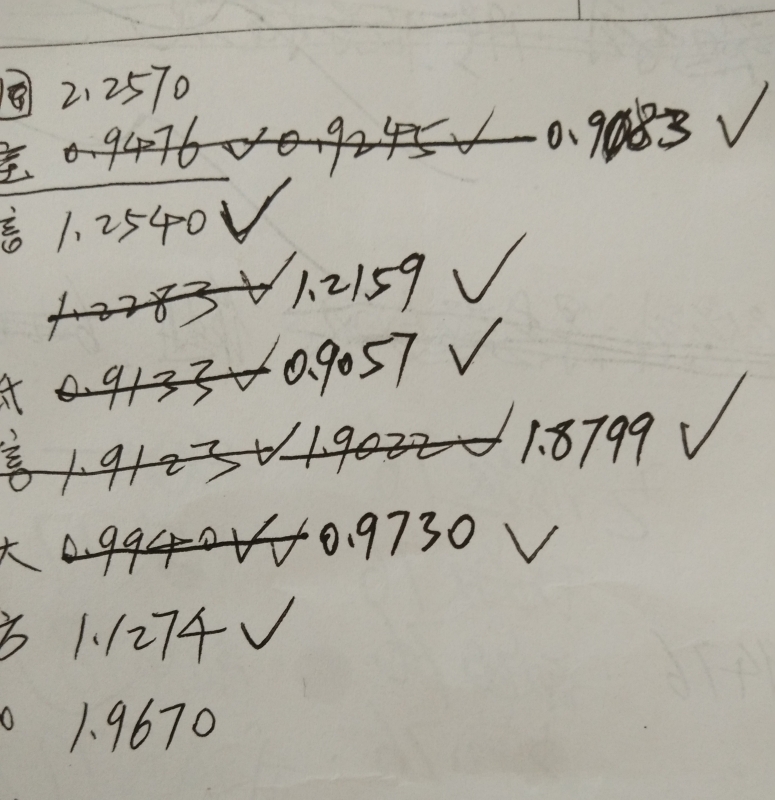 2.2570
0.9476 ✓ 0.9245 ✓ 0.9083 ✓
信 1.2540 ✓
1.2283 ✓ 1.2159 ✓
0.9133 ✓ 0.9057 ✓
信 1.9123 ✓ 1.9022 ✓ 1.8799 ✓
大 0.9940 ✓✓ 0.9730 ✓
方 1.1274 ✓
1.9670